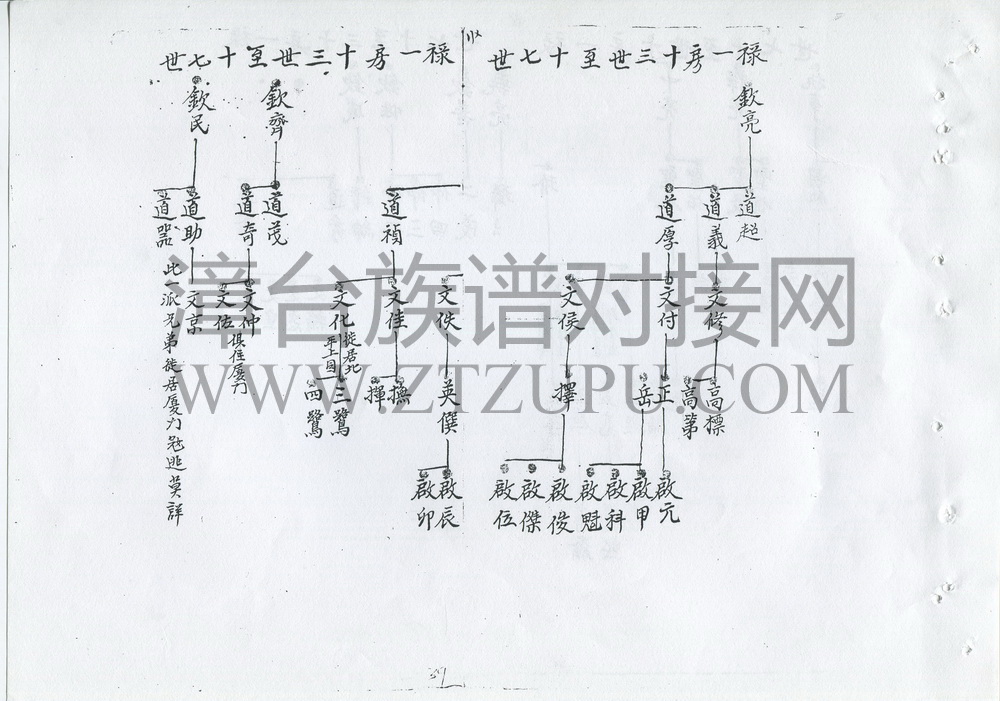 禄一房十三世至十七世
欽亮
道超
道義
道厚
文修
文付
文侯
高標
高第
正
岳
擇
啟元
啟甲
啟科
啟魁
啟俊
啟傑
啟伍
禄一房十三世至十七世
欽齊
欽民
道禎
道茂
道奇
道助
道器
文佚
文佳
文化
徙居北
文仲
俱住廈门
文佐
文京
此一派兄弟徙居廈门
莫詳
英僎
撫
揮
三鷟
四鷟
啟辰
啟卯
漳台族谱对接网
WWW.ZTZUPU.COM